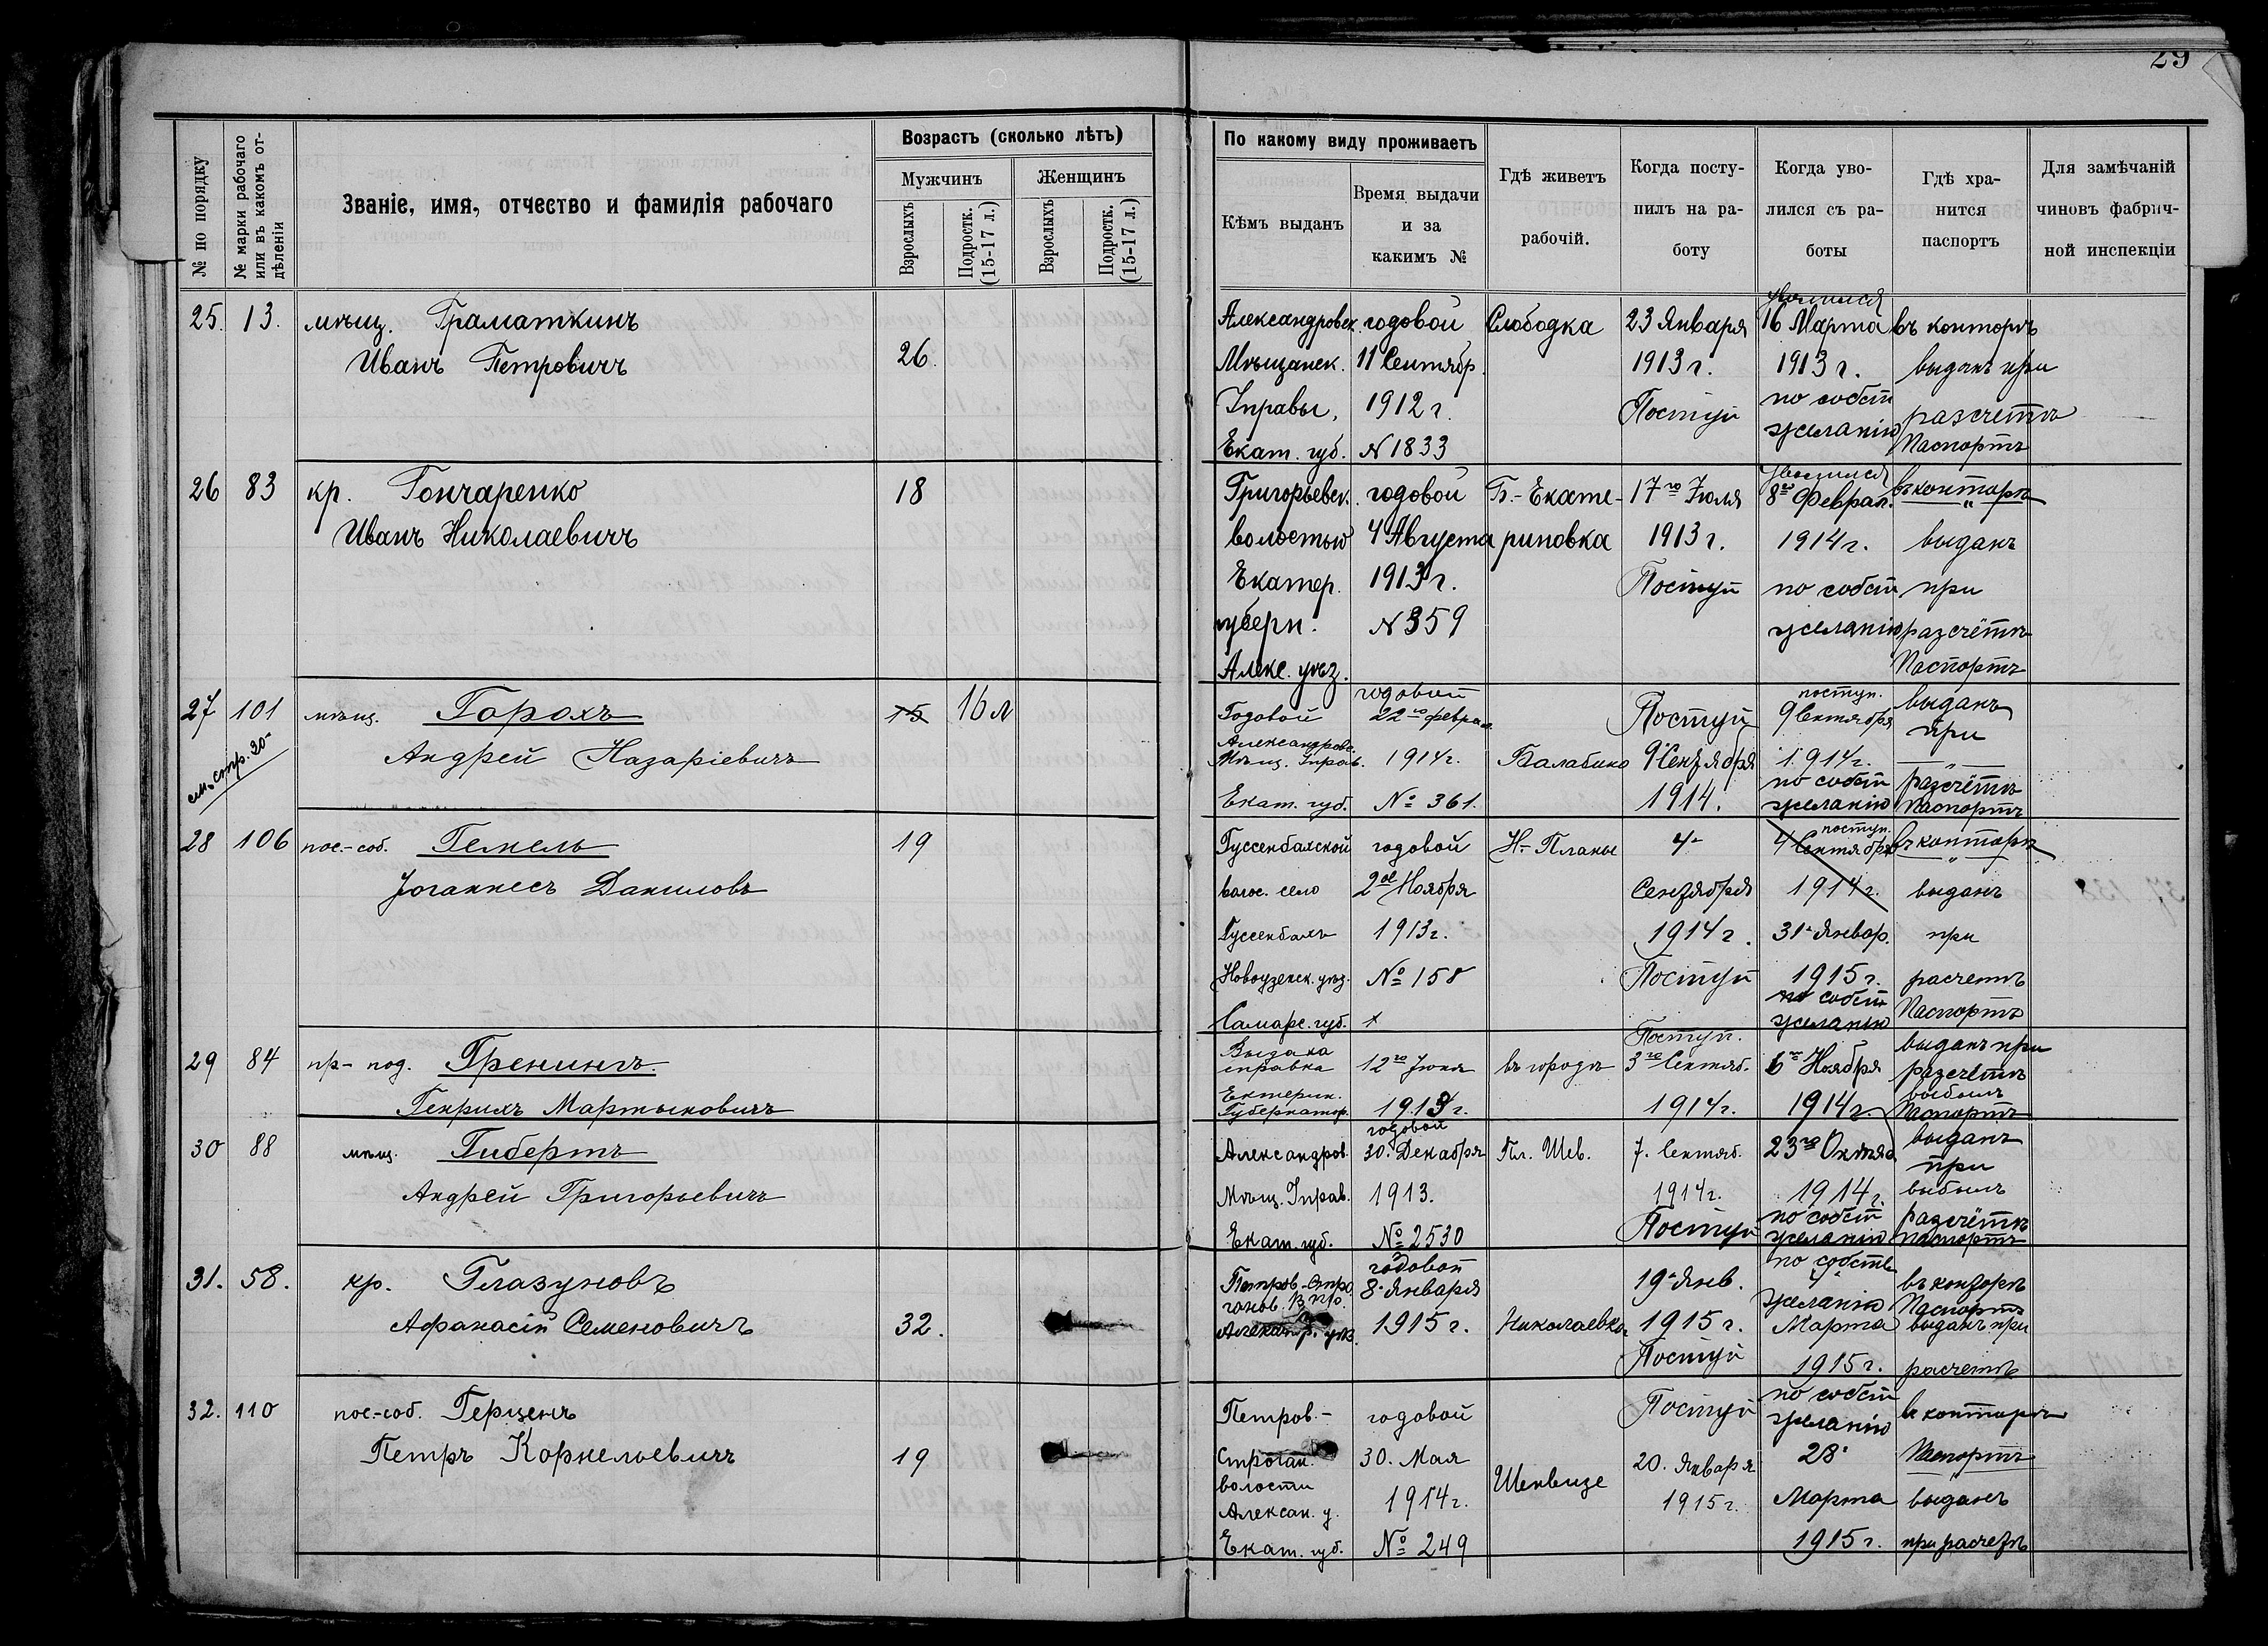 29
№ по порядку
№ марки рабочаго или въ какомъ отдѣленіи
Званіе, имя, отчество и фамилія рабочаго
Возрастъ (сколько лѣтъ)
Мужчинъ
Женщинъ
Взрослыхъ
Подростк. (15-17 л.)
Взрослыхъ
Подростк. (15-17 л.)
По какому виду проживаетъ
Кѣмъ выданъ
Время выдачи
и за
какимъ №
Гдѣ живетъ
рабочій.
Когда посту-
пилъ на ра-
боту
Когда уво-
лился съ ра-
боты
Гдѣ хра-
нится
паспортъ
Для замѣчаній
чиновъ фабрич-
ной инспекціи
25. 13. мѣщ. Граматкинъ
Иванъ Петровичъ 26.
Александровск.
Мѣщанск.
Управы,
Екат. губ.
годовой
11 Сентябр.
1912 г.
№ 1833
Слободка
23 Января
1913 г.
Поступ
Уволился
16 Марта
1913 г.
по собст
желанію
въ конторѣ
выданъ при
разсчетѣ
Паспортъ
26 83 кр. Гончаренко 18
Иванъ Николаевичъ
Григорьевск.
волостью
Екатер.
губерн.
Алекс. уѣз.
годовой
4 Августа
1913 г.
№ 359
Б.-Екате-
риновка
17го Іюля
1913 г.
Поступ
Уволился
8го Феврал.
1914 г.
по собст
желанію
въ конторѣ
выданъ
при
разсчётѣ
Паспортъ
27 101 мѣщ. Горохъ 15 16 л
см. стр. 20
Андрей Назаріевичъ
Годовой
Александровс.
Мѣщ. Управ.
Екат. губ.
годовой
22го феврал
1914 г.
№ 361.
Балабино
Поступ
9 Сентября
1914.
поступ.
9 Сентября
1914 г.
по собст
желанію
выданъ
при
разсчётѣ
Паспортъ
28 106 пос.-соб. Гемель 19
Іоганнесъ Даниловъ
Гуссенбахской
волос. село
Гуссенбахъ
Новоузенск. уѣз.
Самарс. губ.
годовой
2ое Ноября
1913 г.
№ 158
Н-Планы
4-
Сентября
1914 г.
Поступ
поступ.
4 Сентября
1914 г.
31 Январ.
1915 г.
по собст
желанію
въ конторѣ
выданъ
при
расчетѣ
Паспортъ
29 84 пр-под. Гренингъ.
Генрихъ Мартыновичъ
Выдана
справка
Екатерин.
Губернатор.
12го Іюня
1913 г.
въ городѣ
Поступ.
3го Сентяб.
1914 г.
6го Ноября
1914 г.
выданъ при
разсчётѣ
выбылъ
Паспортъ
30 88 мѣщ. Гибертъ
Андрей Григорьевичъ
Александров.
Мѣщ. Управ.
Екат. губ.
годовой
30. Декабря
1913.
№ 2530
Пл. Шев.
7. Сентяб.
1914 г.
Поступ
23го Октяб
1914 г.
по собст
желанію
выданъ
при
выбылъ
разсчётѣ
Паспортъ
31. 58. кр. Глазуновъ
Афанасій Семеновичъ 32.
Петров-Стро
ганов.
Александр. уѣз.
годовой
8 Января
1915 г.
Николаевка
19 Янв.
1915 г.
Поступ
по собств
4
желанію
Марта
1915 г.
въ конторѣ
Паспортъ
выданъ при
расчетѣ
32. 110 пос.-соб. Герценъ
Петръ Корнельевичъ 19
Петров.-
Строган.
волости
Алексан. у.
Екат. губ.
годовой
30. Мая
1914 г.
№ 249
Поступ
20. Января
1915 г.
по собст
желанію
28
Марта
1915 г.
въ конторѣ
Паспортъ
выданъ
при расчетѣ